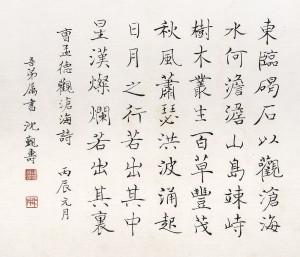 東臨碣石以觀滄海
水何澹澹山島竦峙
樹木叢生百草豐茂
秋風蕭瑟洪波涌起
日月之行若出其中
星漢燦爛若出其裏
曹孟德觀滄海詩 丙辰元月
吾弟屬書 沈覲壽